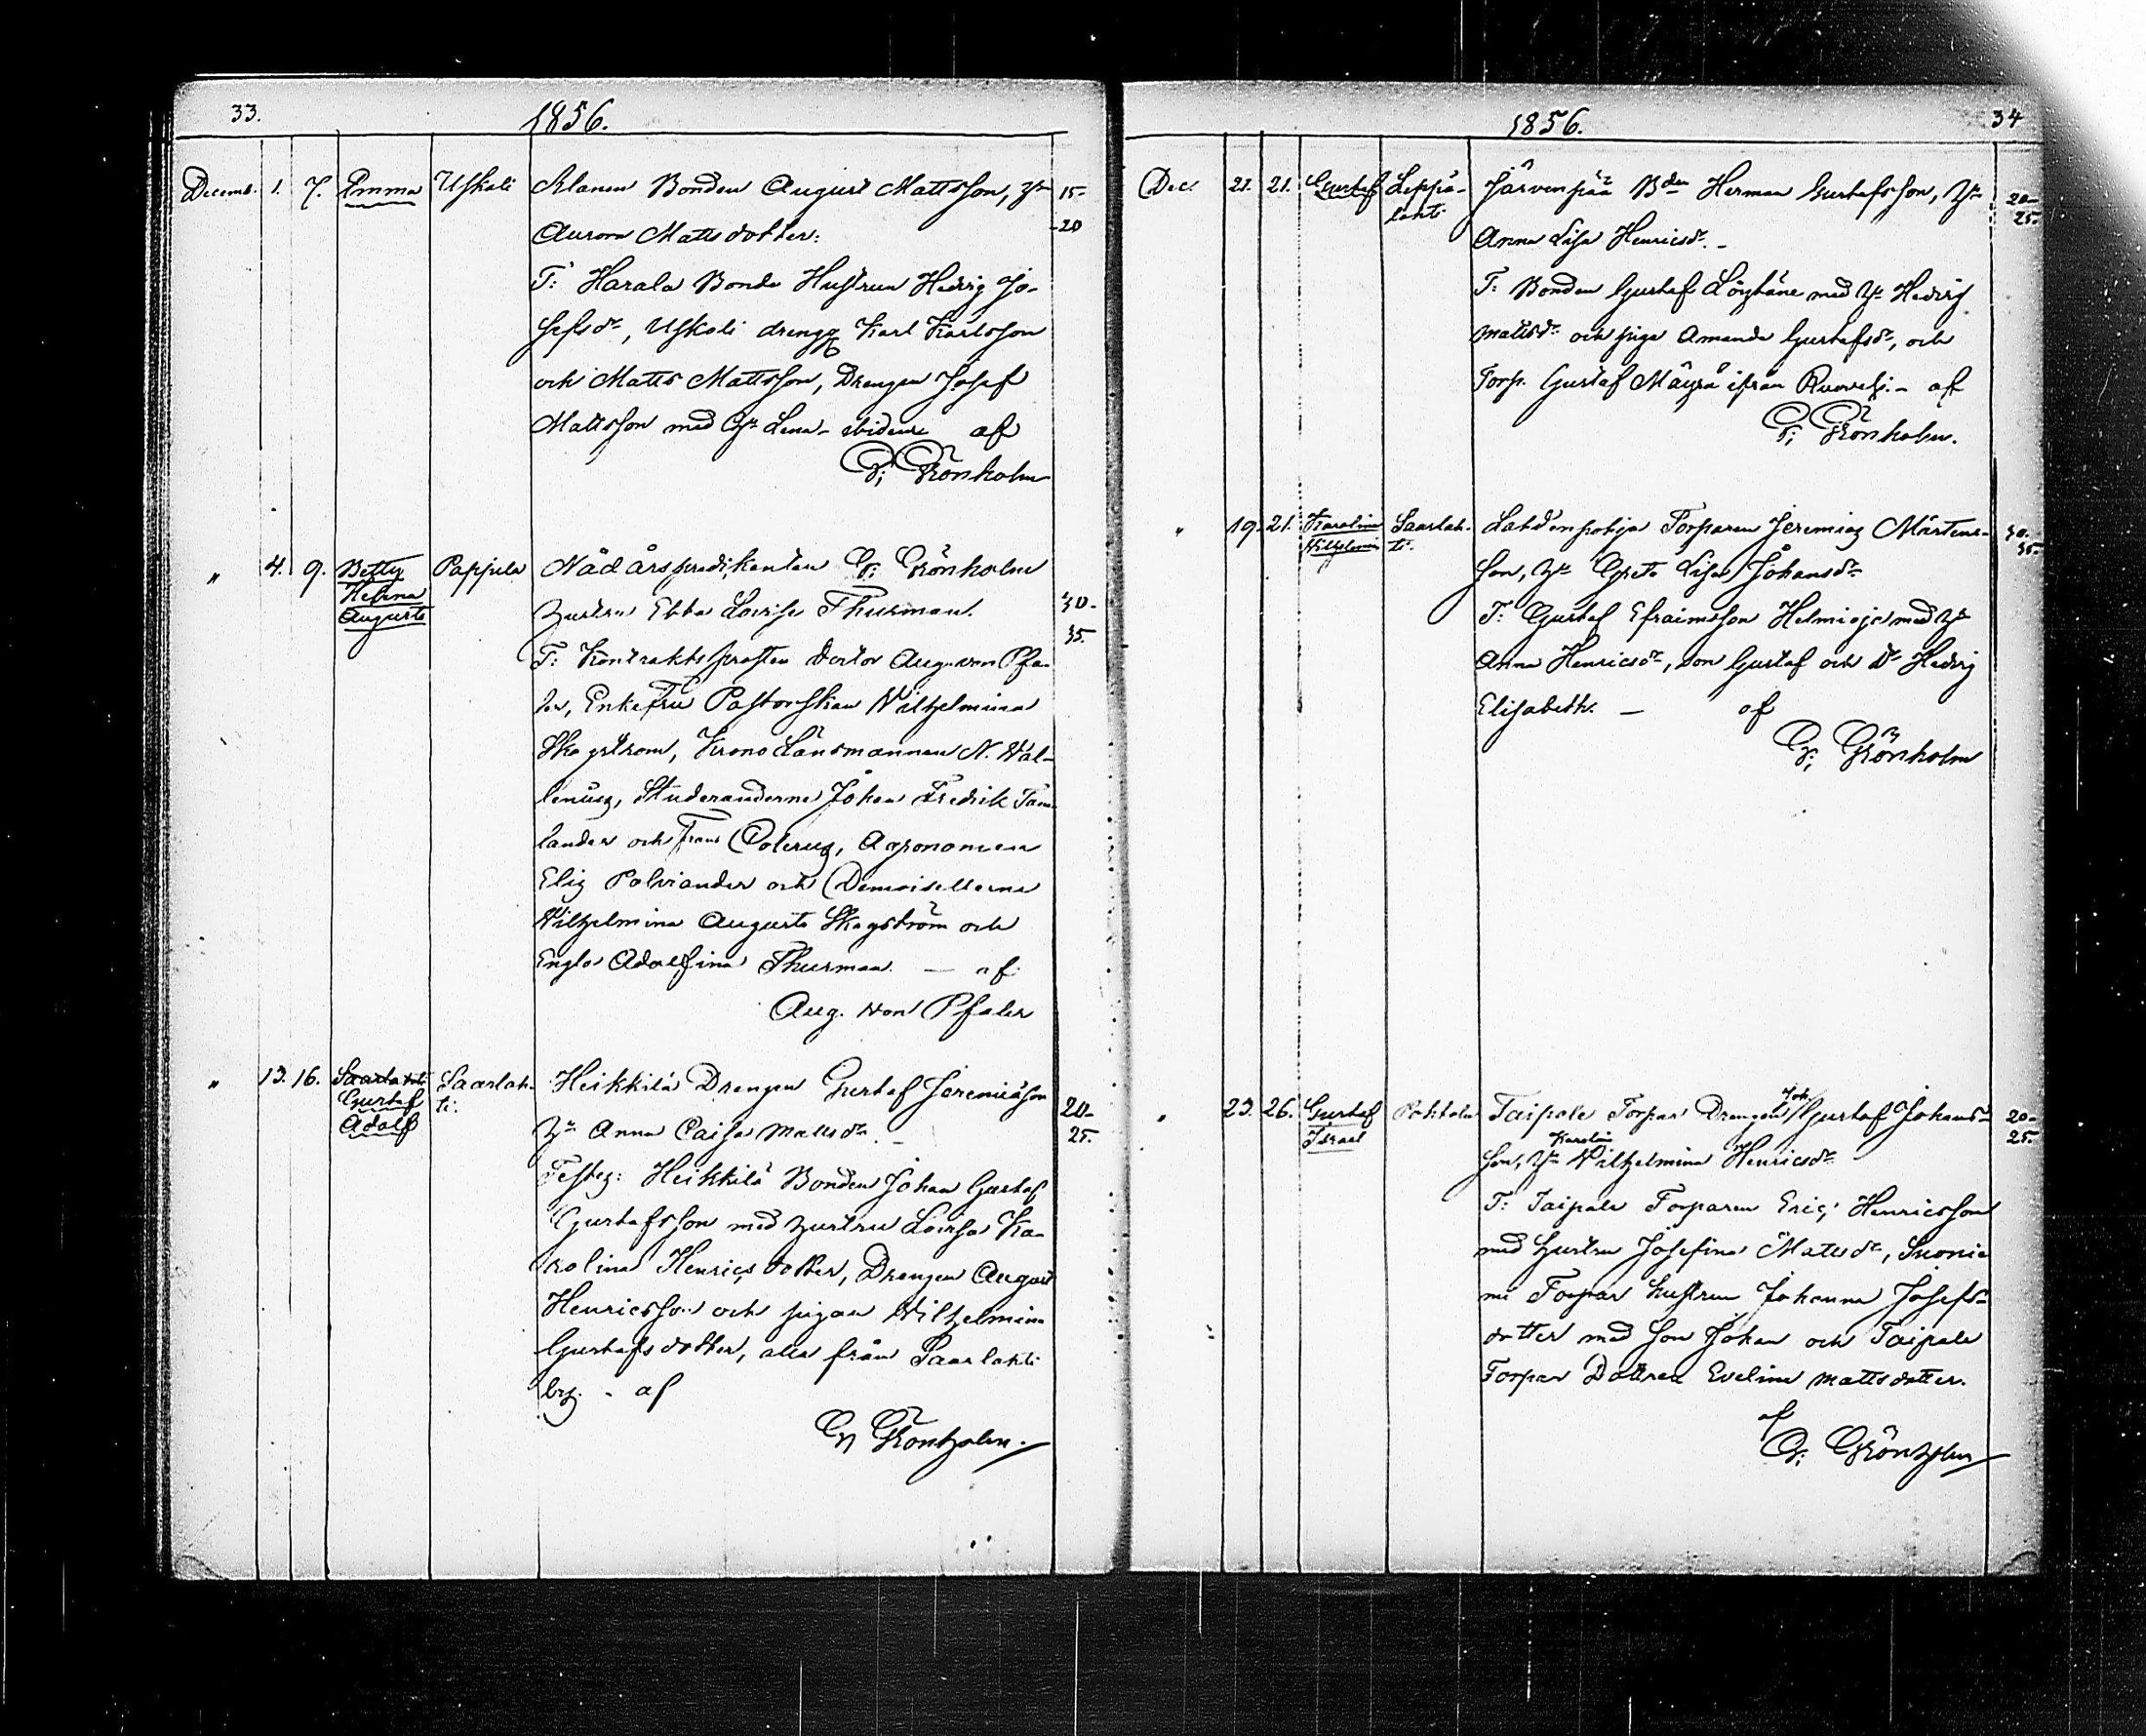 33.
1856.
Decemb. 1. 7. Emma Uskali Alanen Bonden August Mattsson, h 15-
Aurora Matts dotter: 20
T: Harala Bonde Hustrun Hedvig Jo-
sefsdr, Uskali dreng Karl Karlsson
och Matts Mattsson, Drengen Josef
Mattsson med h Lena - ibidem af
G; Grönholm
" 4. 9. Betty Pappila Nådårspredikanten G; Grönholm
Helena
Augusta hustru Ebba Lovisa Thurman. 30-
35.
T: Kontrakts prosten doctor Aug. von Pfa-
ler, Enkefru Pastorskan Wilhelmina
Skogström, Krono Länsmannen N. Wal-
lenius, Studeranderne Johan Fredrik Tam-
lander och Frans Polerus, Agronomen
Elis Polviander och Demoisellerna
Wilhelmina Augusta Skogström och
Engla Adolfina Thurman. — af
Aug. von Pfaler
" 13. 16. Saarlahti Saarlah- Heikkilä Drengen Gustaf Jeremiäson
Gustaf ti. 20-
Adolf h Anna Caisa Mattsdr. - 25.
Testes: Heikkilä Bonden Johan Gustaf
Gustafsson med hustru Lovisa Ka-
rolina Henrics dotter, Drengen August
Henricsson och pigan Wilhelmina
Gustafs dotter, alla från Saarlahti
by. - af
G; Grönholm.
1856.
34
Dec. 21. 21. Gustaf Leppä- Järvenpää Bden Herman Gustafsson, h 20-
lahti 25.
Anna Lisa Henricsdr. -
T: Bonden Gustaf Löytäne med h Hedvig
Mattsdr och piga Amanda Gustafsdr, och
Torp. Gustaf Mäyrä ifrån Ruovesi. - af
G; Grönholm.
" 19. 21. Karolina Saarlah- Lahdenpohja Torparen Jeremias Mårtens- 30.
Wilhelmina ti. 35.
son, h Greta Lisa Johansdr
T: Gustaf Efraimsson Helmioja med h
Anna Henricsdr, son Gustaf och dr Hedvig
Elisabeth. — af
G; Grönholm
" 23. 26. Gustaf Pohtola Taipale Torpar Drengen Joh. Gustaf Johans- 20-
Israel 25.
son, h Karolin Wilhelmina Henricsdr
T: Taipale Torparen Eric Henricsson
med hustru Josefina Mattsdr, Suonie
mi Torpar hustrun Johanna Josefs-
dotter med son Johan och Taipale
Torpar Dottren Evelina mattsdotter.
af
G; Grönholm